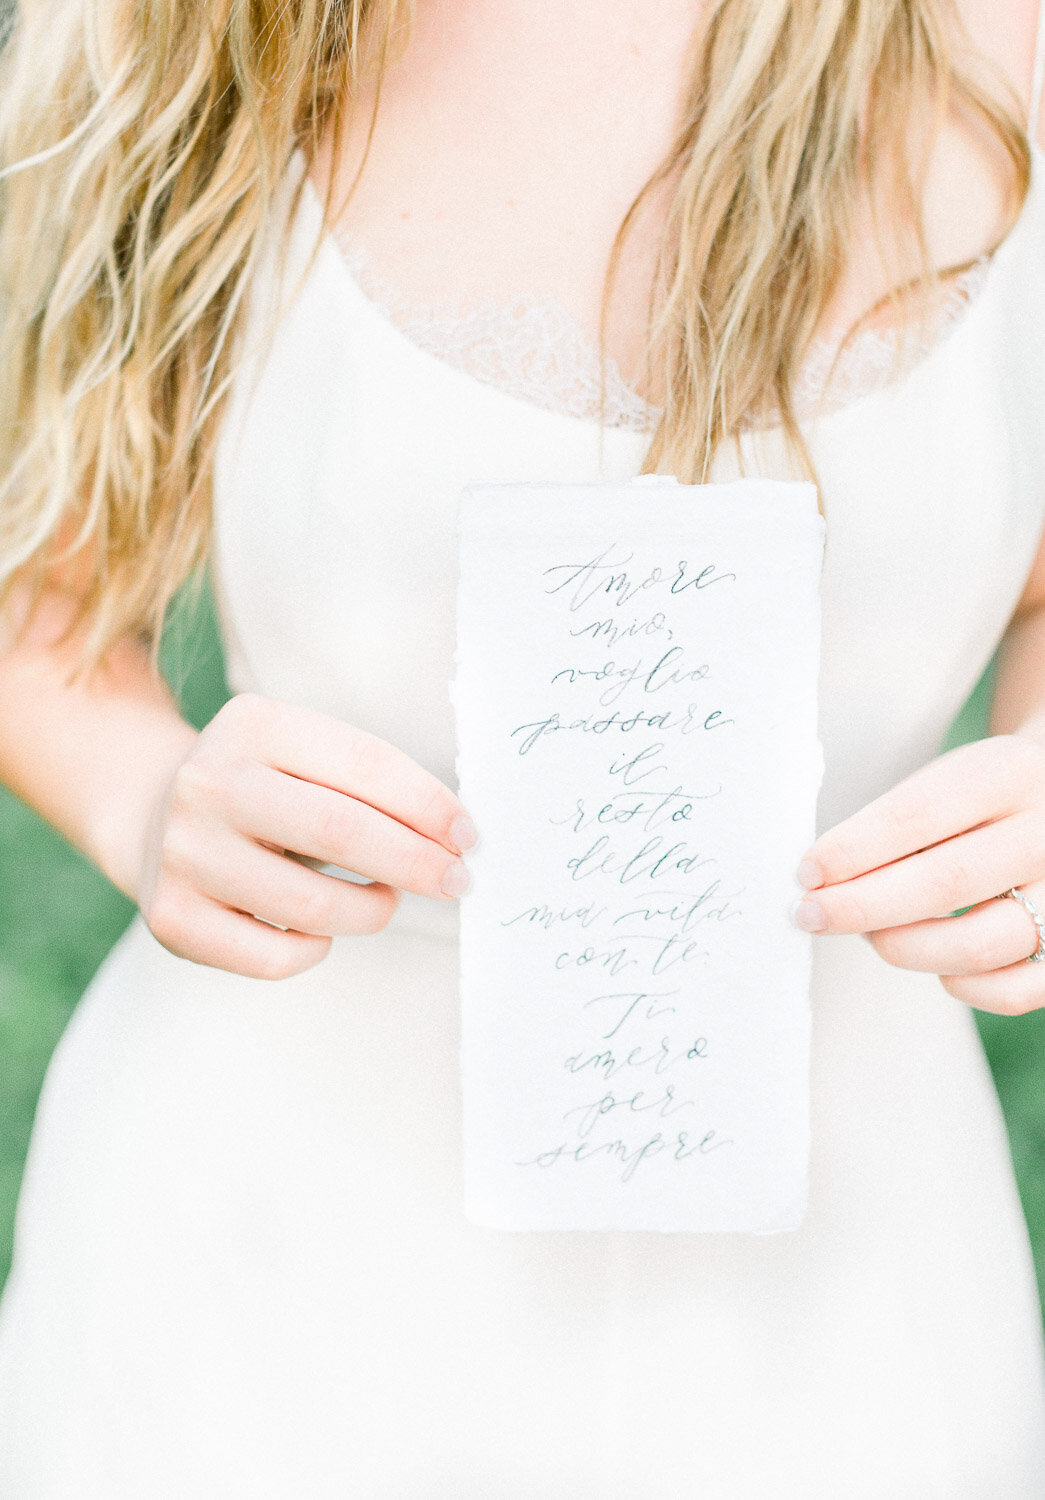 Amore
mio,
voglio
passare
il
resto
della
mia vita
con te.
Ti
amero
per
sempre